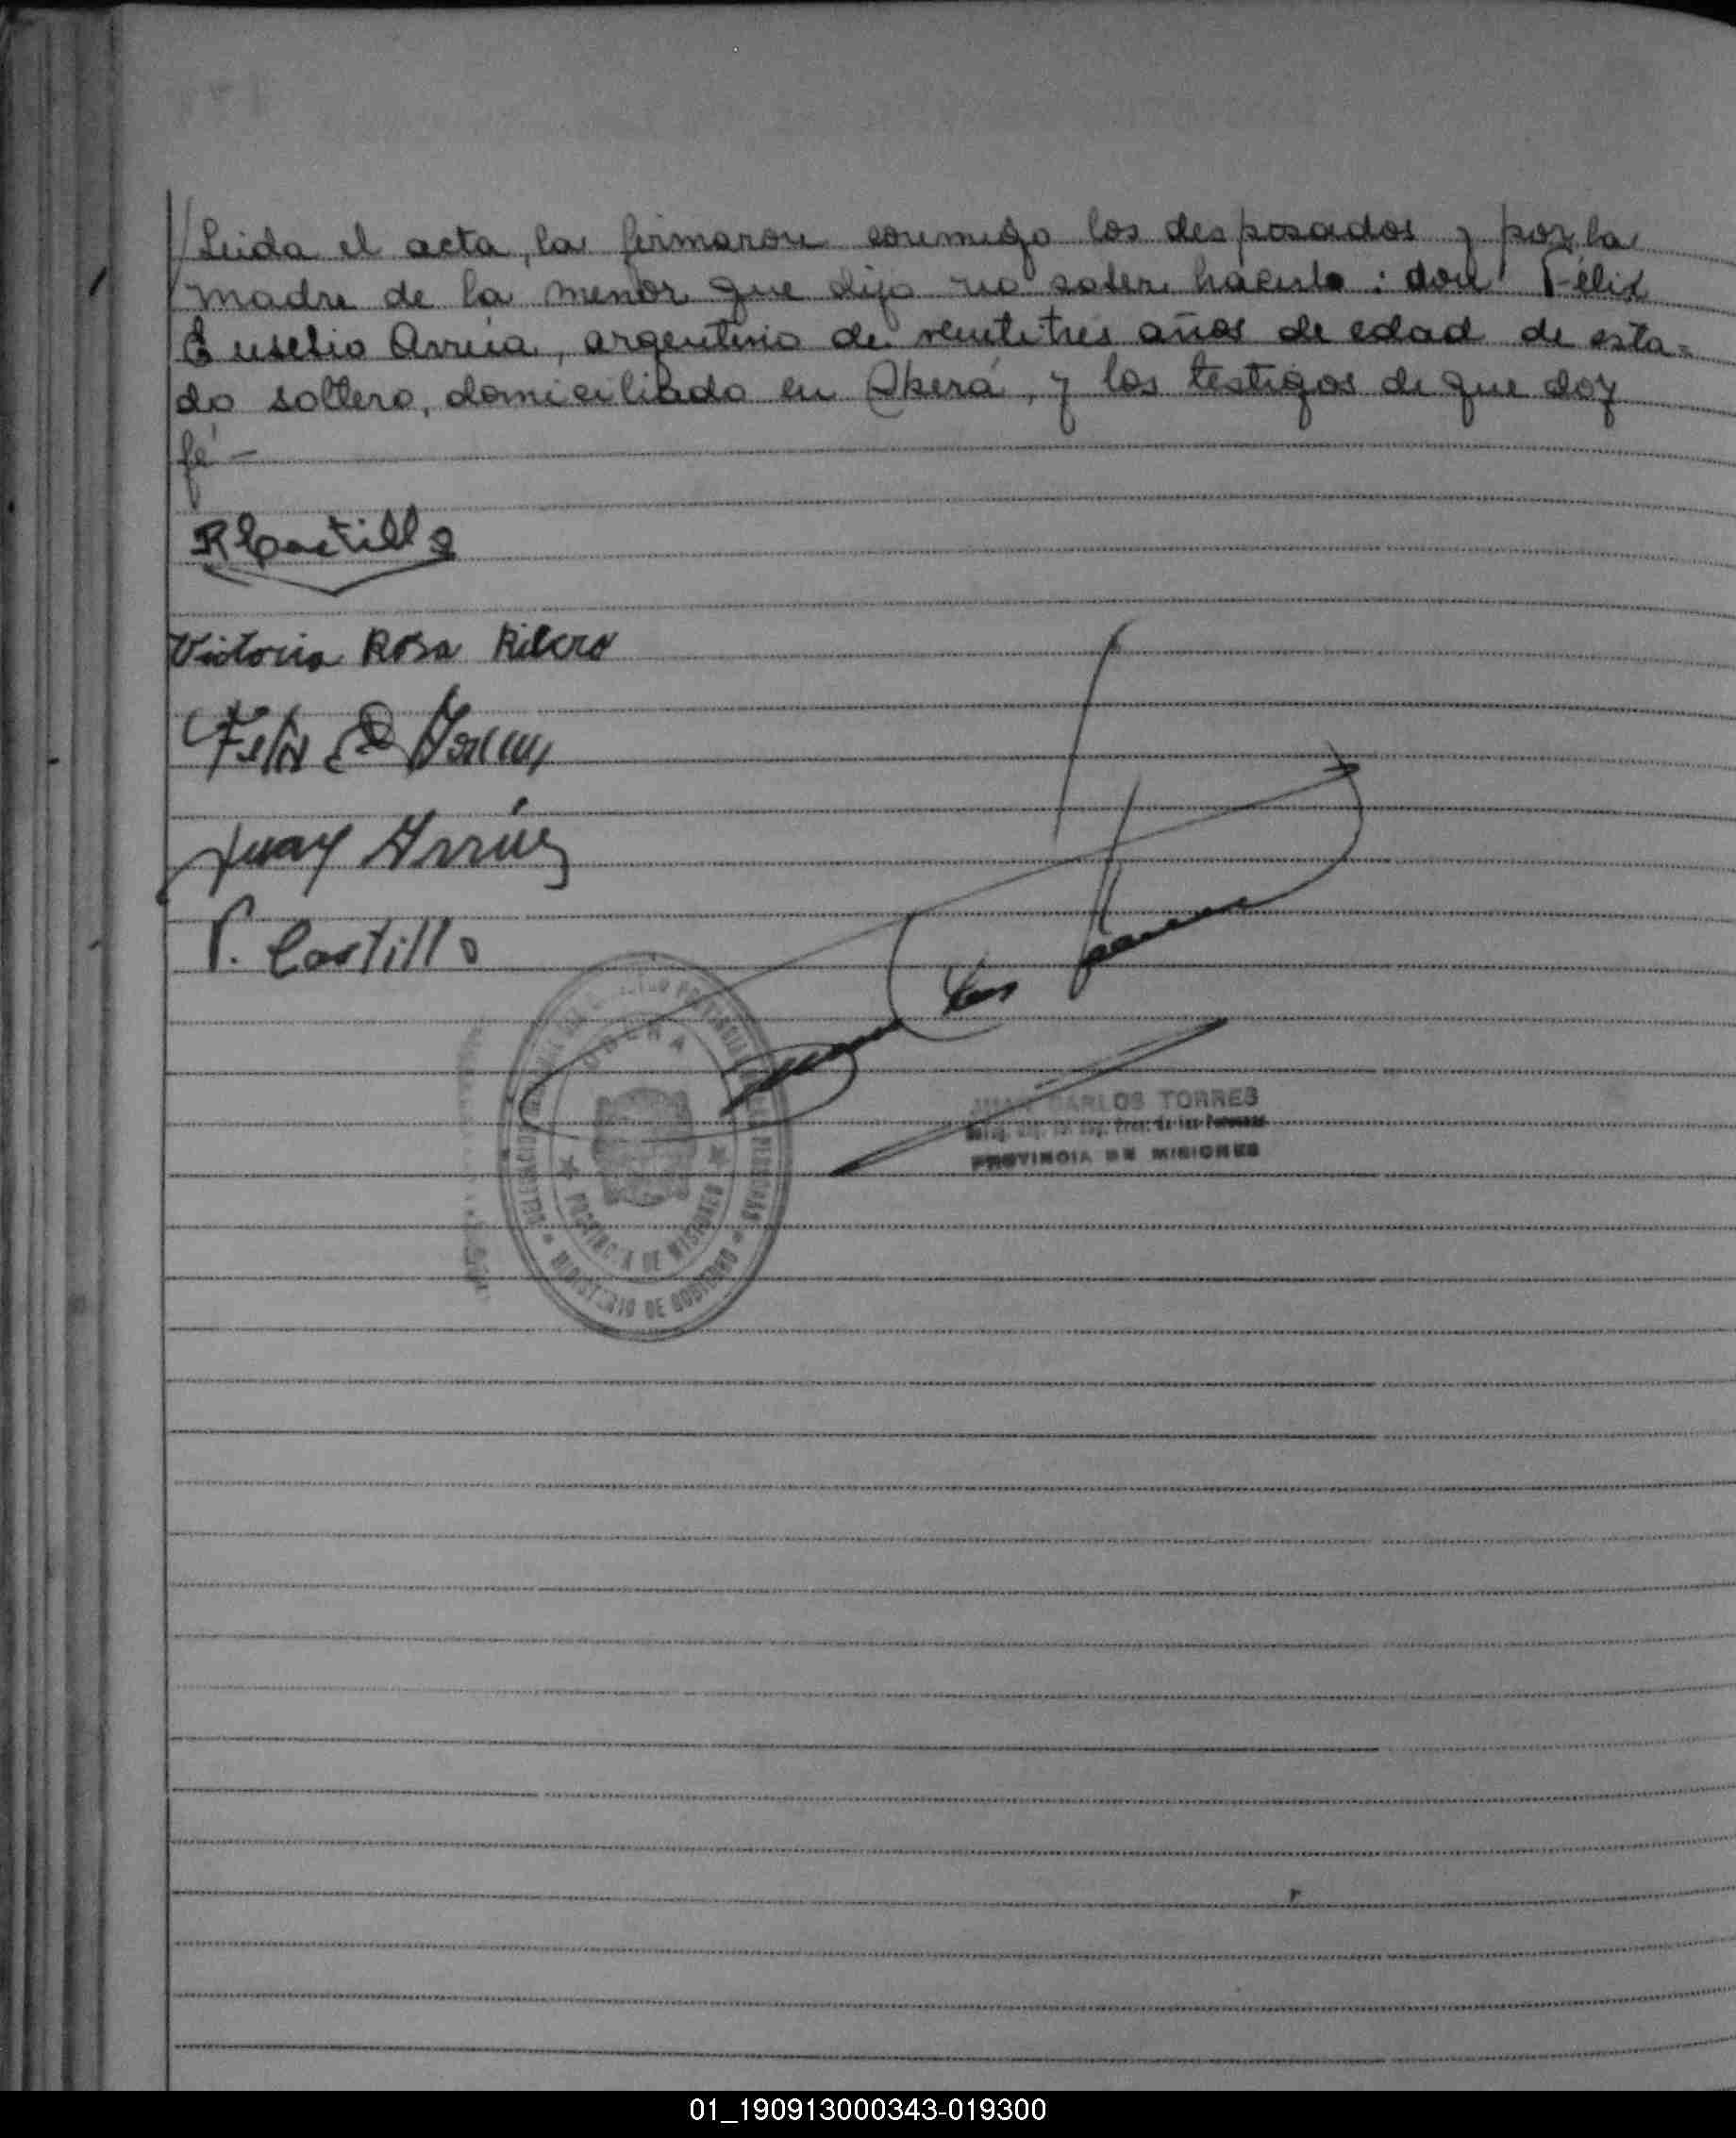 Leida el acta, la firmaron conmigo los desposados y por la
madre de la menor que dijo no saber hacerlo: don Félix
Eusebio Arrúa, argentino de veintitres años de edad de esta=
do soltero, domiciliado en Oberá, y los testigos de que doy
fé -
R Castillo
Victoria Rosa Ribero
Felix E
Juan Arrúa
P. Castillo
OBERA
PROVINCIA DE MISIONES
MINISTERIO DE GOBIERNO
JUAN CARLOS TORRES
Prov. de las Personas
PROVINCIA DE MISIONES
01_190913000343-019300